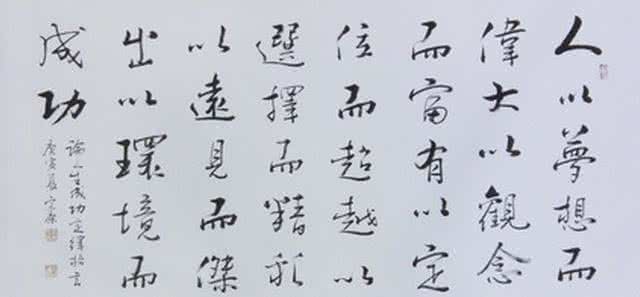 人以夢想而
偉大以觀念
而富有以定
位而超越以
選擇而精彩
以遠見而傑
出以環境而
成功
論人生成功定律格言
庚寅夏